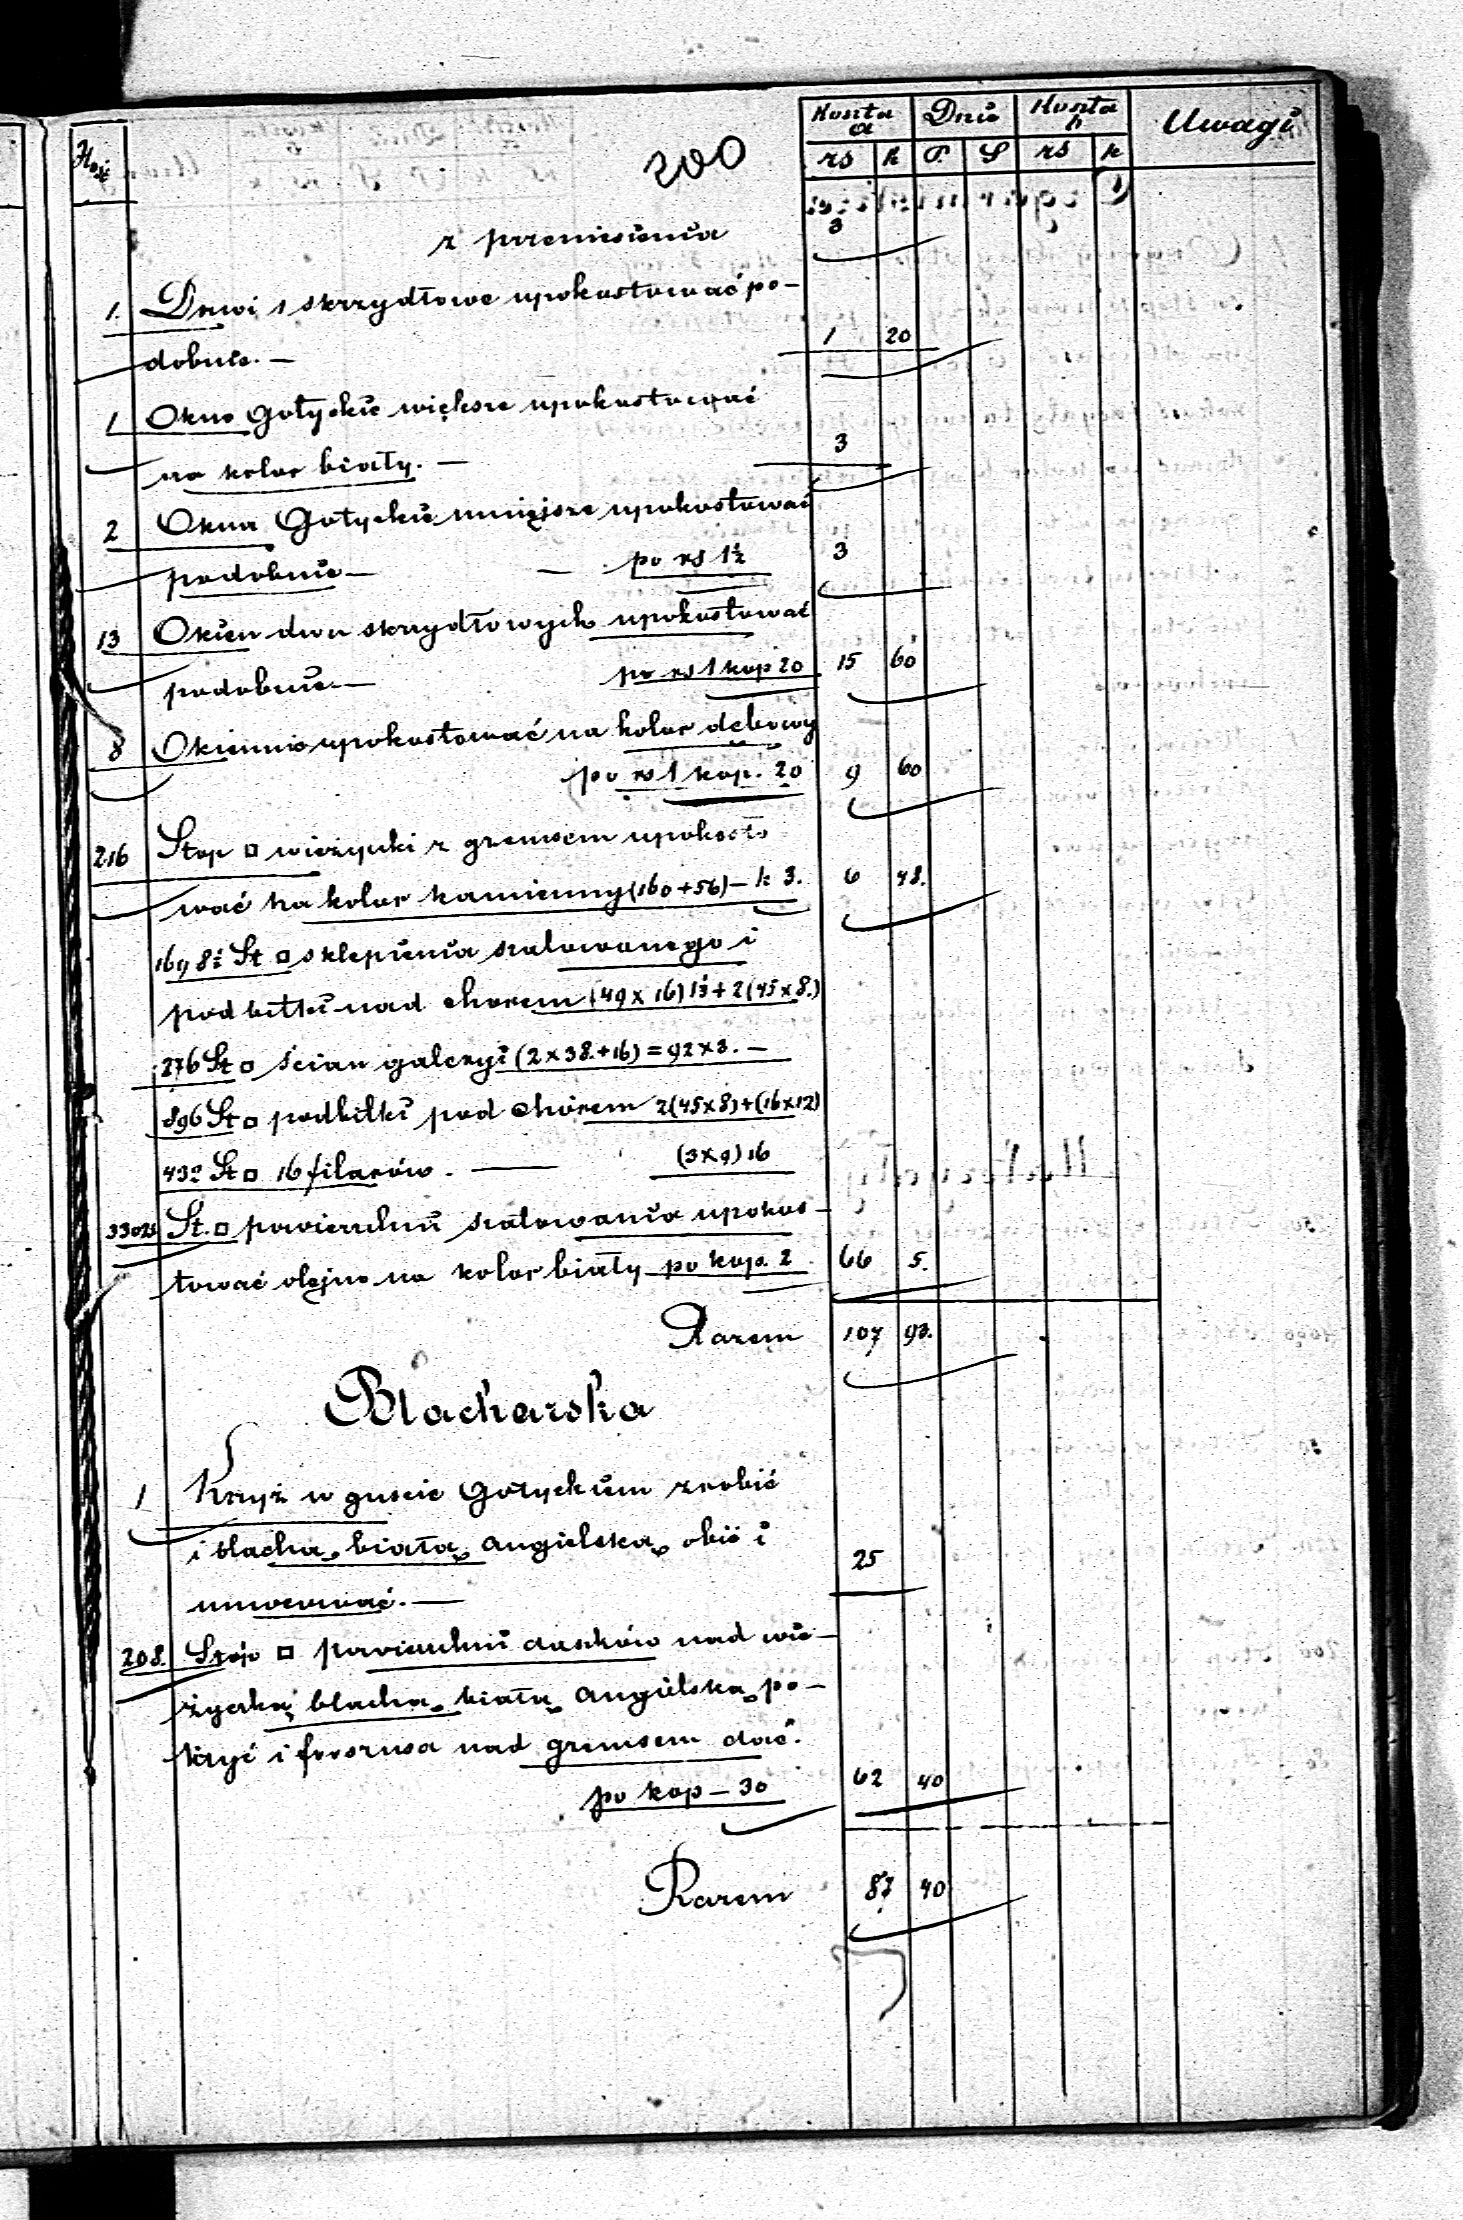 200
Ilość
Koszta a Dnie Koszta b Uwagi
rs k P. S rs k
z przeniesienia 3
1. Drzwi 1 skrzydłowe upokostować po-
dobnie. — 1 20
1 Okno Gotyckie większe upokostować
na kolor biały. — 3
2 Okna Gotyckie mniejsze upokostować
podobnie — — po rs 1½ 3
13 Okien dwu skrzydłowych upokostować
podobnie. — po rs 1 kop 20 15 60
8 Okiennic upokostować na kolor dębowy
po rs 1 kop. 20 9 60
216 Stop □ wieżyczki z gzemsem upokosto
wać na kolor kamienny (160+56) — k 3. 6 48.
1698½ St □ sklepienia szalowanego i
podbitki nad chorem (49 x 16) 1⅓ + 2 (45 x 8.)
276 St □ ścian galeryi (2 x 38.+16) = 92 x 3. —
896 St □ podbitki pod chórem 2(45x8)+(16x12)
432 St □ 16 filarów. — (3x9) 16
3302½ St. □ powierzchni szalowania upokos-
tować olejno na kolor biały po kop. 2 66 5.
Razem 107 93.
Blacharska
1 Krzyż w guście Gotyckiem zrobić
i blachą białą angielską obić i
umocować. — 25
208. Stóp □ powierzchni daszków nad wie-
życzką blachą białą angielską po-
kryć i forsznsa nad gzemsem dać.
po kop — 30 62 40
Razem 87 40